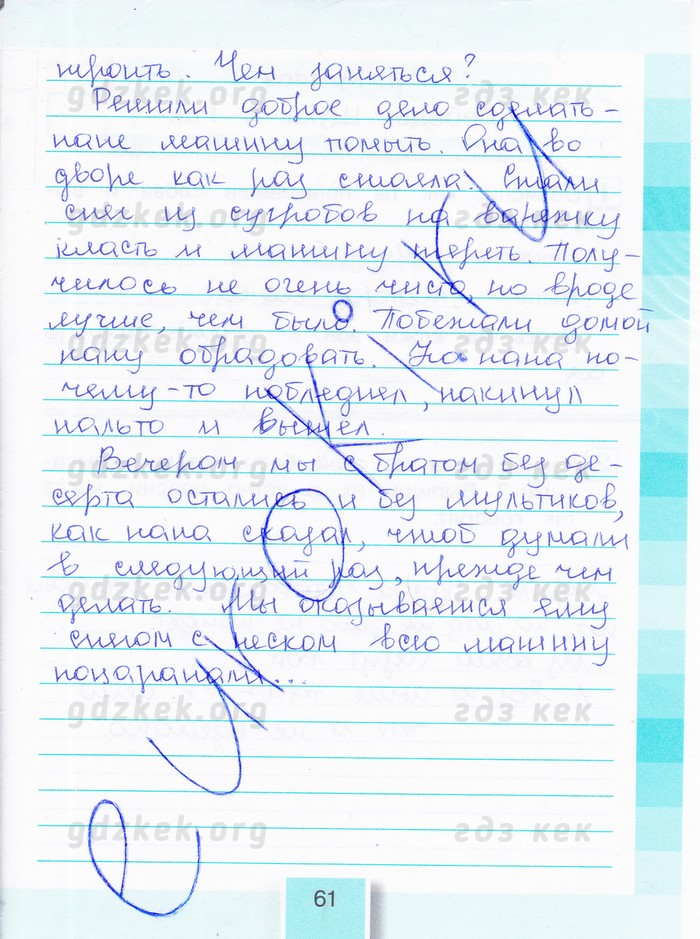 троить. Чем заняться?
Решили доброе дело сделать -
папе машину помыть. Она во
дворе как раз стояла. Стали
снег из сугробов на варежку
класть и машину тереть. Полу-
чилось не очень чисто, но вроде
лучше, чем было. Побежали домой
папу обрадовать. Но папа по-
чему-то побледнел, накинул
пальто и вышел.
Вечером мы с братом без де-
серта остались и без мультиков,
как папа сказал, чтоб думали
в следующий раз, прежде чем
делать. Мы оказывается ему
снегом с песком всю машину
поцарапали...
gdzkek.org гдз кек
61